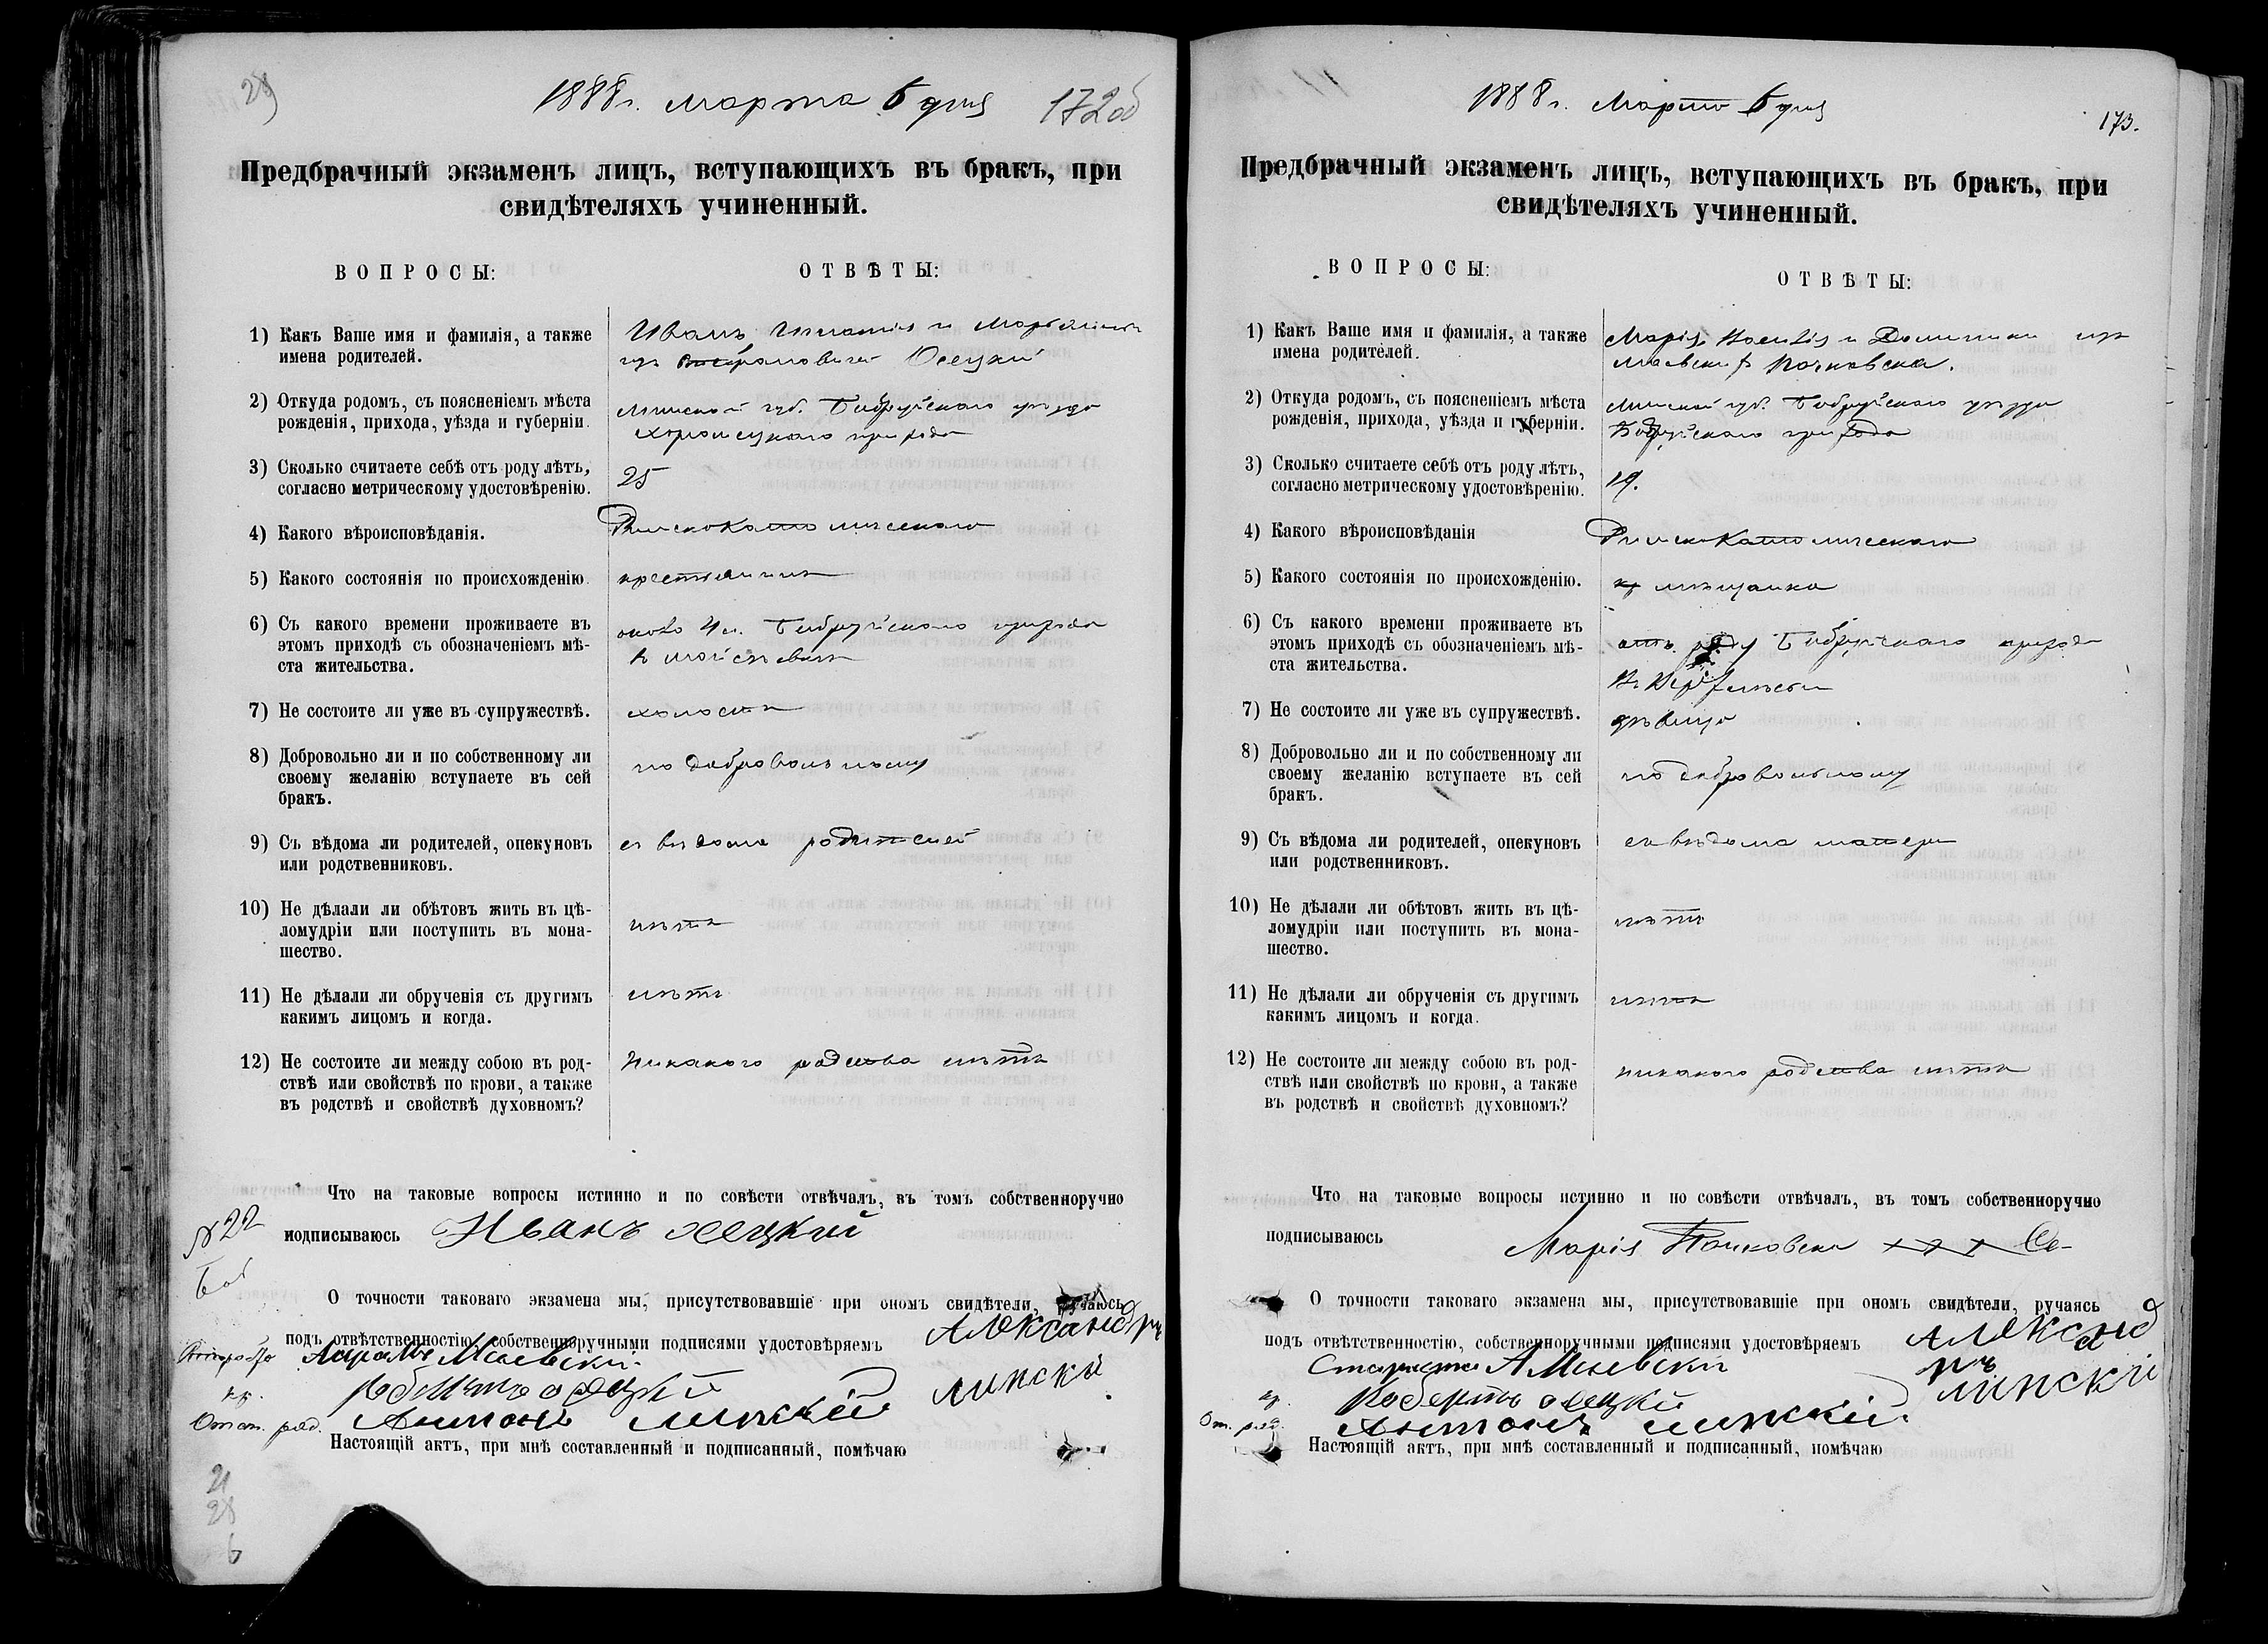 29
1888 г. марта 6 дня
172об
Предбрачный экзаменъ лицъ, вступающихъ въ бракъ, при
свидѣтеляхъ учиненный.
ВОПРОСЫ:
ОТВѢТЫ:
1) Какъ Ваше имя и фамилія, а также
имена родителей.
Иванъ Игнатія и Марьянны
изъ Осецкій
2) Откуда родомъ, съ поясненіемъ мѣста
рожденія, прихода, уѣзда и губерніи.
Минской губ. Бобруйскаго уѣзда
прихода
3) Сколько считаете себѣ отъ роду лѣтъ,
согласно метрическому удостовѣренію.
25
4) Какого вѣроисповѣданія.
Римскокатолическаго
5) Какого состоянія по происхожденію.
крестьянинъ
6) Съ какого времени проживаете въ
этомъ приходѣ съ обозначеніемъ мѣ-
ста жительства.
около 4 Бобруйскаго прихода
7) Не состоите ли уже въ супружествѣ.
холостъ
8) Добровольно ли и по собственному ли
своему желанію вступаете въ сей
бракъ.
по добровольному
9) Съ вѣдома ли родителей, опекуновъ
или родственниковъ.
съ вѣдома родителей
10) Не дѣлали ли обѣтовъ жить въ цѣ-
ломудріи или поступить въ мона-
шество.
нѣтъ
11) Не дѣлали ли обрученія съ другимъ
какимъ лицомъ и когда.
нѣтъ
12) Не состоите ли между собою въ род-
ствѣ или свойствѣ по крови, а также
въ родствѣ и свойствѣ духовномъ?
Никакого родства нѣтъ
Что на таковые вопросы истинно и по совѣсти отвѣчалъ, въ томъ собственноручно
подписываюсь Иванъ осецкий
№22
О точности таковаго экзамена мы, присутствовавшіе при ономъ свидѣтели, ручаюсь
подъ отвѣтственностію, собственноручными подписями удостовѣряемъ Александръ
Маевскі
осецкій липскй
кр.
Отст. ряд. Антонъ липскій
Настоящій актъ, при мнѣ составленный и подписанный, помѣчаю
21
28
6
1888 г. Марта 6 дня
173.
Предбрачный экзаменъ лицъ, вступающихъ въ бракъ, при
свидѣтеляхъ учиненный.
ВОПРОСЫ:
ОТВѢТЫ:
1) Какъ Ваше имя и фамилія, а также
имена родителей.
Марія и Доминики изъ
Почковска.
2) Откуда родомъ, съ поясненіемъ мѣста
рожденія, прихода, уѣзда и губерніи.
Минской губ. Бобруйскаго уѣзда
Бобруйскаго прихода
3) Сколько считаете себѣ отъ роду лѣтъ,
согласно метрическому удостовѣренію.
19.
4) Какого вѣроисповѣданія
Римскокатолическаго
5) Какого состоянія по происхожденію.
мѣщанка
6) Съ какого времени проживаете въ
этомъ приходѣ съ обозначеніемъ мѣ-
ста жительства.
отъ роду Бобруйскаго прихода
7) Не состоите ли уже въ супружествѣ.
дѣвица
8) Добровольно ли и по собственному ли
своему желанію вступаете въ сей
бракъ.
по добровольному
9) Съ вѣдома ли родителей, опекуновъ
или родственниковъ.
съ вѣдома матери
10) Не дѣлали ли обѣтовъ жить въ цѣ-
ломудріи или поступить въ мона-
шество.
нѣтъ
11) Не дѣлали ли обрученія съ другимъ
какимъ лицомъ и когда.
нѣтъ
12) Не состоите ли между собою въ род-
ствѣ или свойствѣ по крови, а также
въ родствѣ и свойствѣ духовномъ?
никакого родства нѣтъ
Что на таковые вопросы истинно и по совѣсти отвѣчалъ, въ томъ собственноручно
подписываюсь
Марія Почковска +++
О точности таковаго экзамена мы, присутствовавшіе при ономъ свидѣтели, ручаясь
подъ отвѣтственностію, собственноручными подписями удостовѣряемъ Александ
Староста А Маевски ръ
кр. Робертъ осецкій липскій
От. ряд. Антонъ липскій
Настоящій актъ, при мнѣ составленный и подписанный, помѣчаю